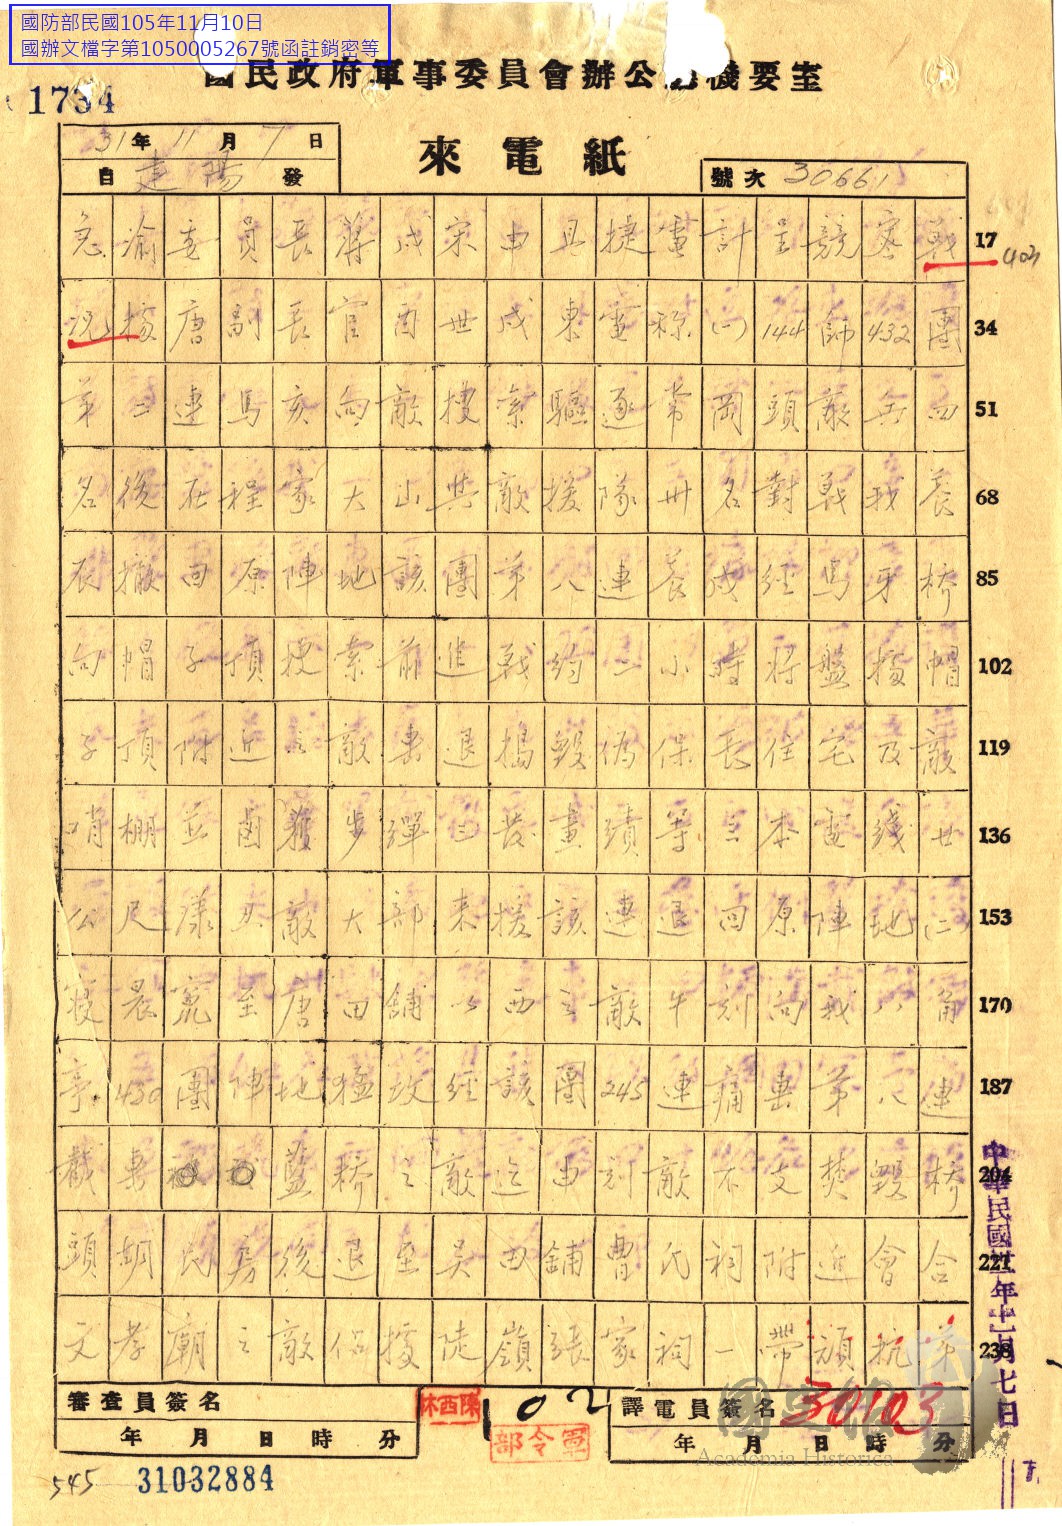 國防部民國105年11月10日
國辦文檔字第1050005267號函註銷密等
國民政府軍事委員會辦公廳機要室
1734
31年11月7日
來電紙
自建陽發
號次 30661
急渝委員長蔣戌宋由且捷電計呈競密戰 17
403
況據唐副長官酉世戌東電稱(一)144師432團 34
第二連馬亥向敵搜索驅逐常岡頭敵兵四 51
名後在程家大山與敵援隊卅名對戰我養 68
辰撤回原陣地該團第八連養戌經馬牙橋 85
向帽子頂搜索前進戰約一小時將盤據帽 102
子頂附近之敵擊退搗毀偽保長住宅及敵 119
哨棚並鹵獲步彈三發畫績等三本電綫廿 136
公尺漾丑敵大部來援該連退回原陣地(二) 153
晨竄至唐田舖以西之敵午刻向我八角 170
亭430團陣地猛攻經該團245連痛擊第八連 187
截擊藍橋之敵迄申刻敵不支焚毀橋 204
頭胡氏房後退至吳田舖曹氏祠附近會合 221
文孝廟之敵佔據陡嶺張家祠一帶頑抗第 238
中華民國卅一年十一月七日
審查員簽名
年 月 日 時 分
陳西林
102
軍令部
譯電員簽名
30103
年 月 日 時 分
國史館
Academia Historica
545
31032884